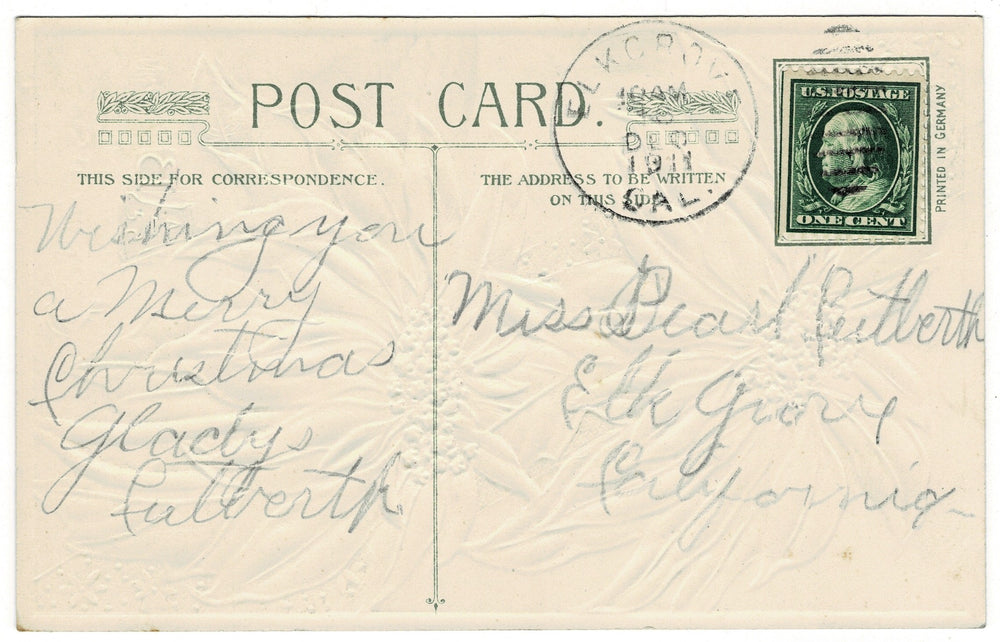 POST CARD.
THIS SIDE FOR CORRESPONDENCE.
THE ADDRESS TO BE WRITTEN
ON THIS SIDE.
ELK GROVE
DEC
1911
CAL.
U.S. POSTAGE
ONE CENT
PRINTED IN GERMANY
Wishing you
a Merry
Christmas
Gladys
Cutberth
Miss Cutberth
Elk Grove
California